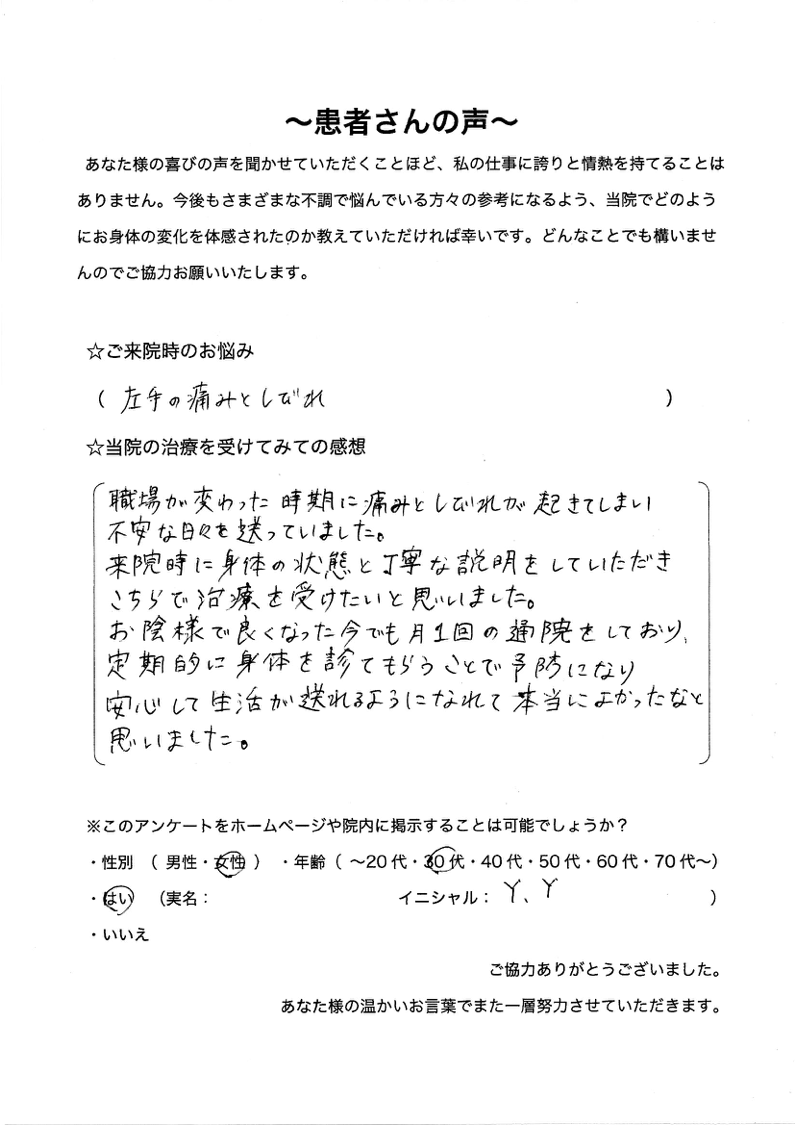 ～患者さんの声～
あなた様の喜びの声を聞かせていただくことほど、私の仕事に誇りと情熱を持てることは
ありません。今後もさまざまな不調で悩んでいる方々の参考になるよう、当院でどのよう
にお身体の変化を体感されたのか教えていただければ幸いです。どんなことでも構いませ
んのでご協力お願いいたします。
☆ご来院時のお悩み
（ 左手の痛みとしびれ ）
☆当院の治療を受けてみての感想
職場が変わった時期に痛みとしびれが起きてしまい
不安な日々を送っていました。
来院時に身体の状態と丁寧な説明をしていただき
こちらで治療を受けたいと思いました。
お陰様で良くなった今でも月1回の通院をしており、
定期的に身体を診てもらうことで予防になり
安心して生活が送れるようになれて本当によかったなと
思いました。
※このアンケートをホームページや院内に掲示することは可能でしょうか？
・性別 （ 男性・女性 ） ・年齢（ ～20代・30代・40代・50代・60代・70代～）
・はい （実名： イニシャル： Y、Y ）
・いいえ
ご協力ありがとうございました。
あなた様の温かいお言葉でまた一層努力させていただきます。